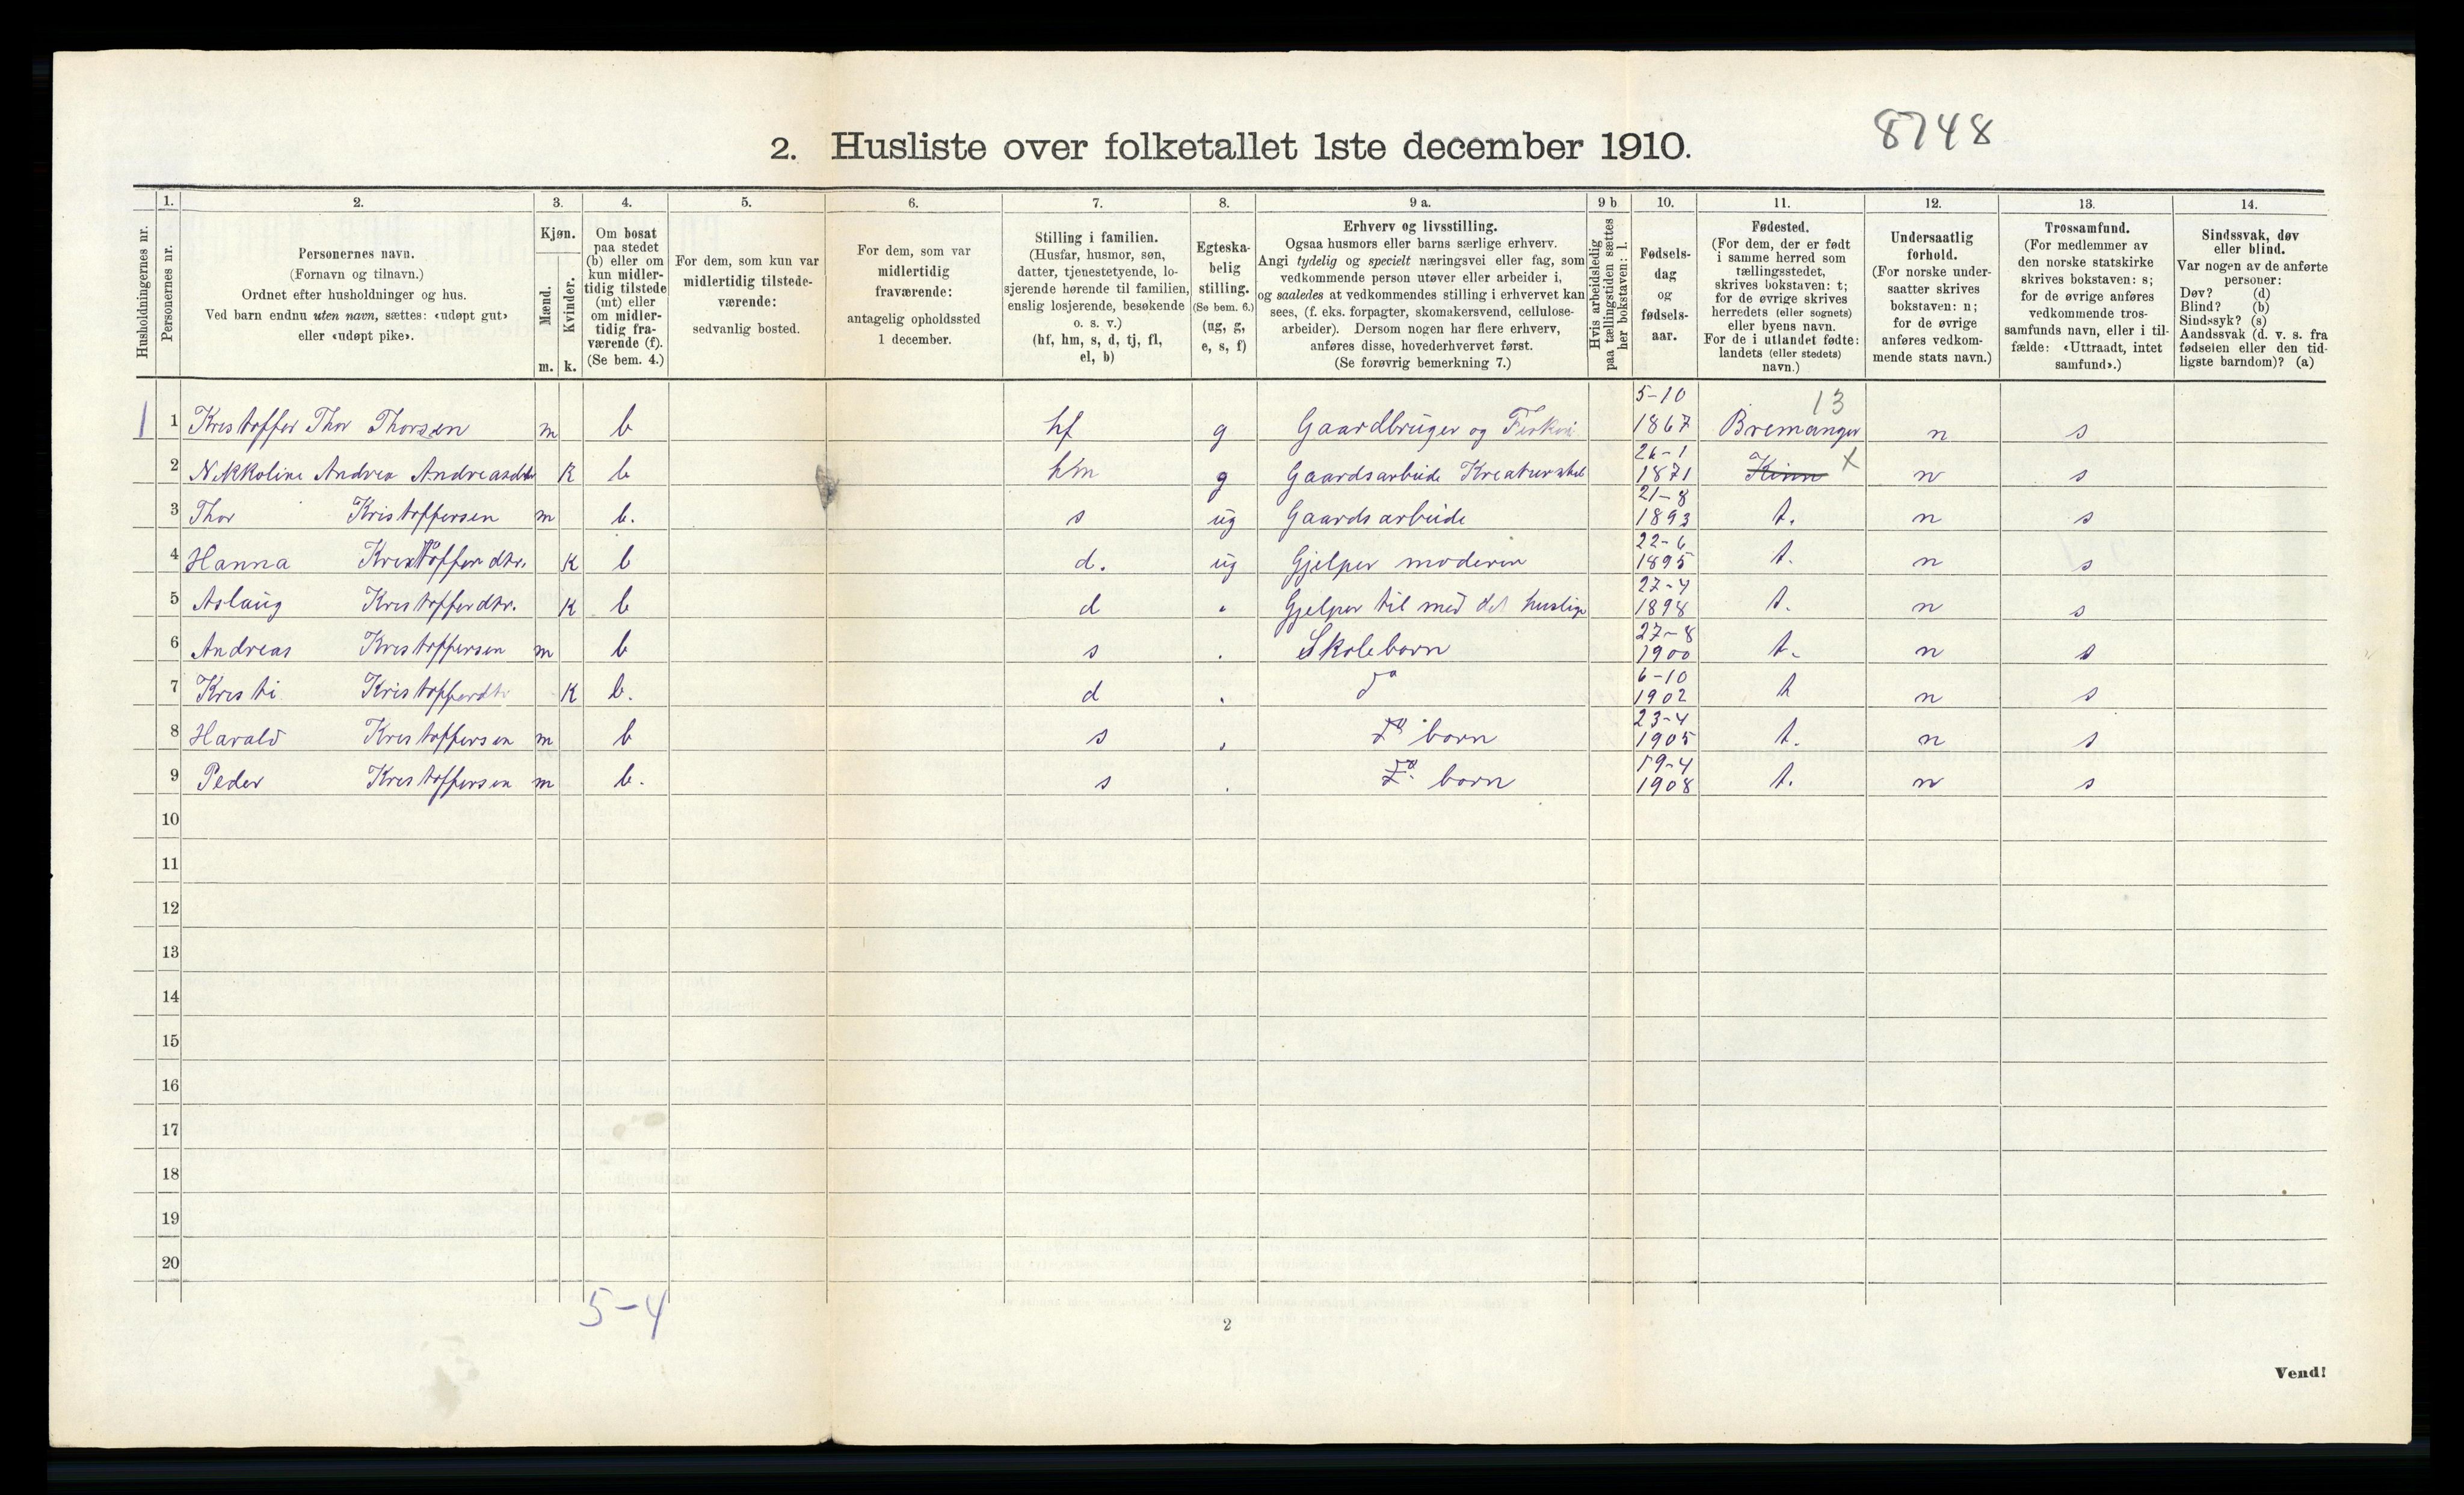 8748
2. Husliste over folketallet 1ste december 1910.
Husholdningernes nr.
1. Personernes nr.
2. Personernes navn. (Fornavn og tilnavn.) Ordnet efter husholdninger og hus. Ved barn endnu uten navn, sættes: «udøpt gut» eller «udøpt pike».
3. Kjøn. Mænd. m. Kvinder. k.
4. Om bosat paa stedet (b) eller om kun midlertidig tilstede (mt) eller om midlertidig fraværende (f). (Se bem. 4.)
5. For dem, som kun var midlertidig tilstedeværende: sedvanlig bosted.
6. For dem, som var midlertidig fraværende: antagelig opholdssted 1 december.
7. Stilling i familien. (Husfar, husmor, søn, datter, tjenestetyende, losjerende hørende til familien, enslig losjerende, besøkende o. s. v.) (hf, hm, s, d, tj, fl, el, b)
8. Egteskabelig stilling. (Se bem. 6.) (ug, g, e, s, f)
9 a. Erhverv og livsstilling. Ogsaa husmors eller barns særlige erhverv. Angi tydelig og specielt næringsvei eller fag, som vedkommende person utøver eller arbeider i, og saaledes at vedkommendes stilling i erhvervet kan sees, (f. eks. forpagter, skomakersvend, cellulose-arbeider). Dersom nogen har flere erhverv, anføres disse, hovederhvervet først. (Se forøvrig bemerkning 7.)
9 b Hvis arbeidsledig paa tællingstiden sættes her bokstaven: l.
10. Fødselsdag og fødselsaar.
11. Fødested. (For dem, der er født i samme herred som tællingsstedet, skrives bokstaven: t; for de øvrige skrives herredets (eller sognets) eller byens navn. For de i utlandet fødte: landets (eller stedets) navn.)
12. Undersaatlig forhold. (For norske undersaatter skrives bokstaven: n; for de øvrige anføres vedkommende stats navn.)
13. Trossamfund. (For medlemmer av den norske statskirke skrives bokstaven: s; for de øvrige anføres vedkommende trossamfunds navn, eller i tilfælde: «Uttraadt, intet samfund».)
14. Sindssvak, døv eller blind. Var nogen av de anførte personer: Døv? (d) Blind? (b) Sindssyk? (s) Aandssvak (d. v. s. fra fødselen eller den tidligste barndom)? (a)
1 1 Kristoffer Thor Thorsen m b hf g Gaardbruger og 5-10 1867 Bremanger 13 n s
2 Nikkoline Andrea Andreasdtr K b hm g Gaardsarbeide Kreaturstel 26-1 1871 Kinn X n s
3 Thor Kristoffersen m b. s ug Gaardsarbeide 21-8 1893 t. n s
4 Hanna Kristofferdtr. K b d. ug Gjelper moderen 22-6 1895 t. n s
5 Aslaug Kristofferdtr. K b d " Gjelper til med det huslige 27-4 1898 t. n s
6 Andreas Kristoffersen m b s . Skolebarn 27-8 1900 t. n s
7 Kristi Kristofferdtr K b. d . do 6-10 1902 t n s
8 Harald Kristoffersen m b s , barn 23-4 1905 t. n s
9 Peder Kristoffersen m b. s . barn 19-4 1908 t. n s
10
11
12
13
14
15
16
17
18
19
20
5-4
2
Vend!